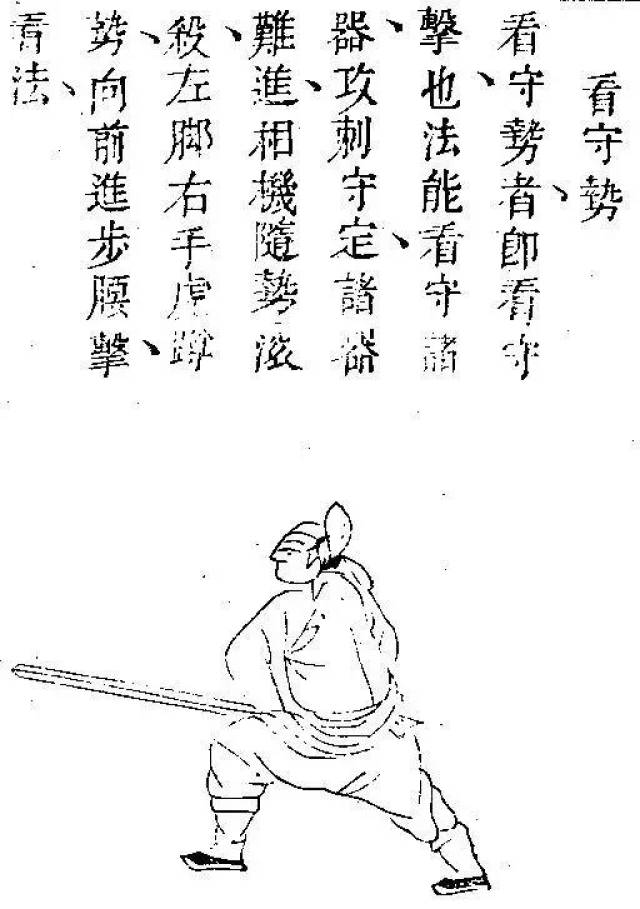 看守勢
看守勢者即看守
擊也法能看守諸
器攻刺守定諸器
難進相機隨勢滚
殺左脚右手虎蹲
勢向前進步腰擊
看法